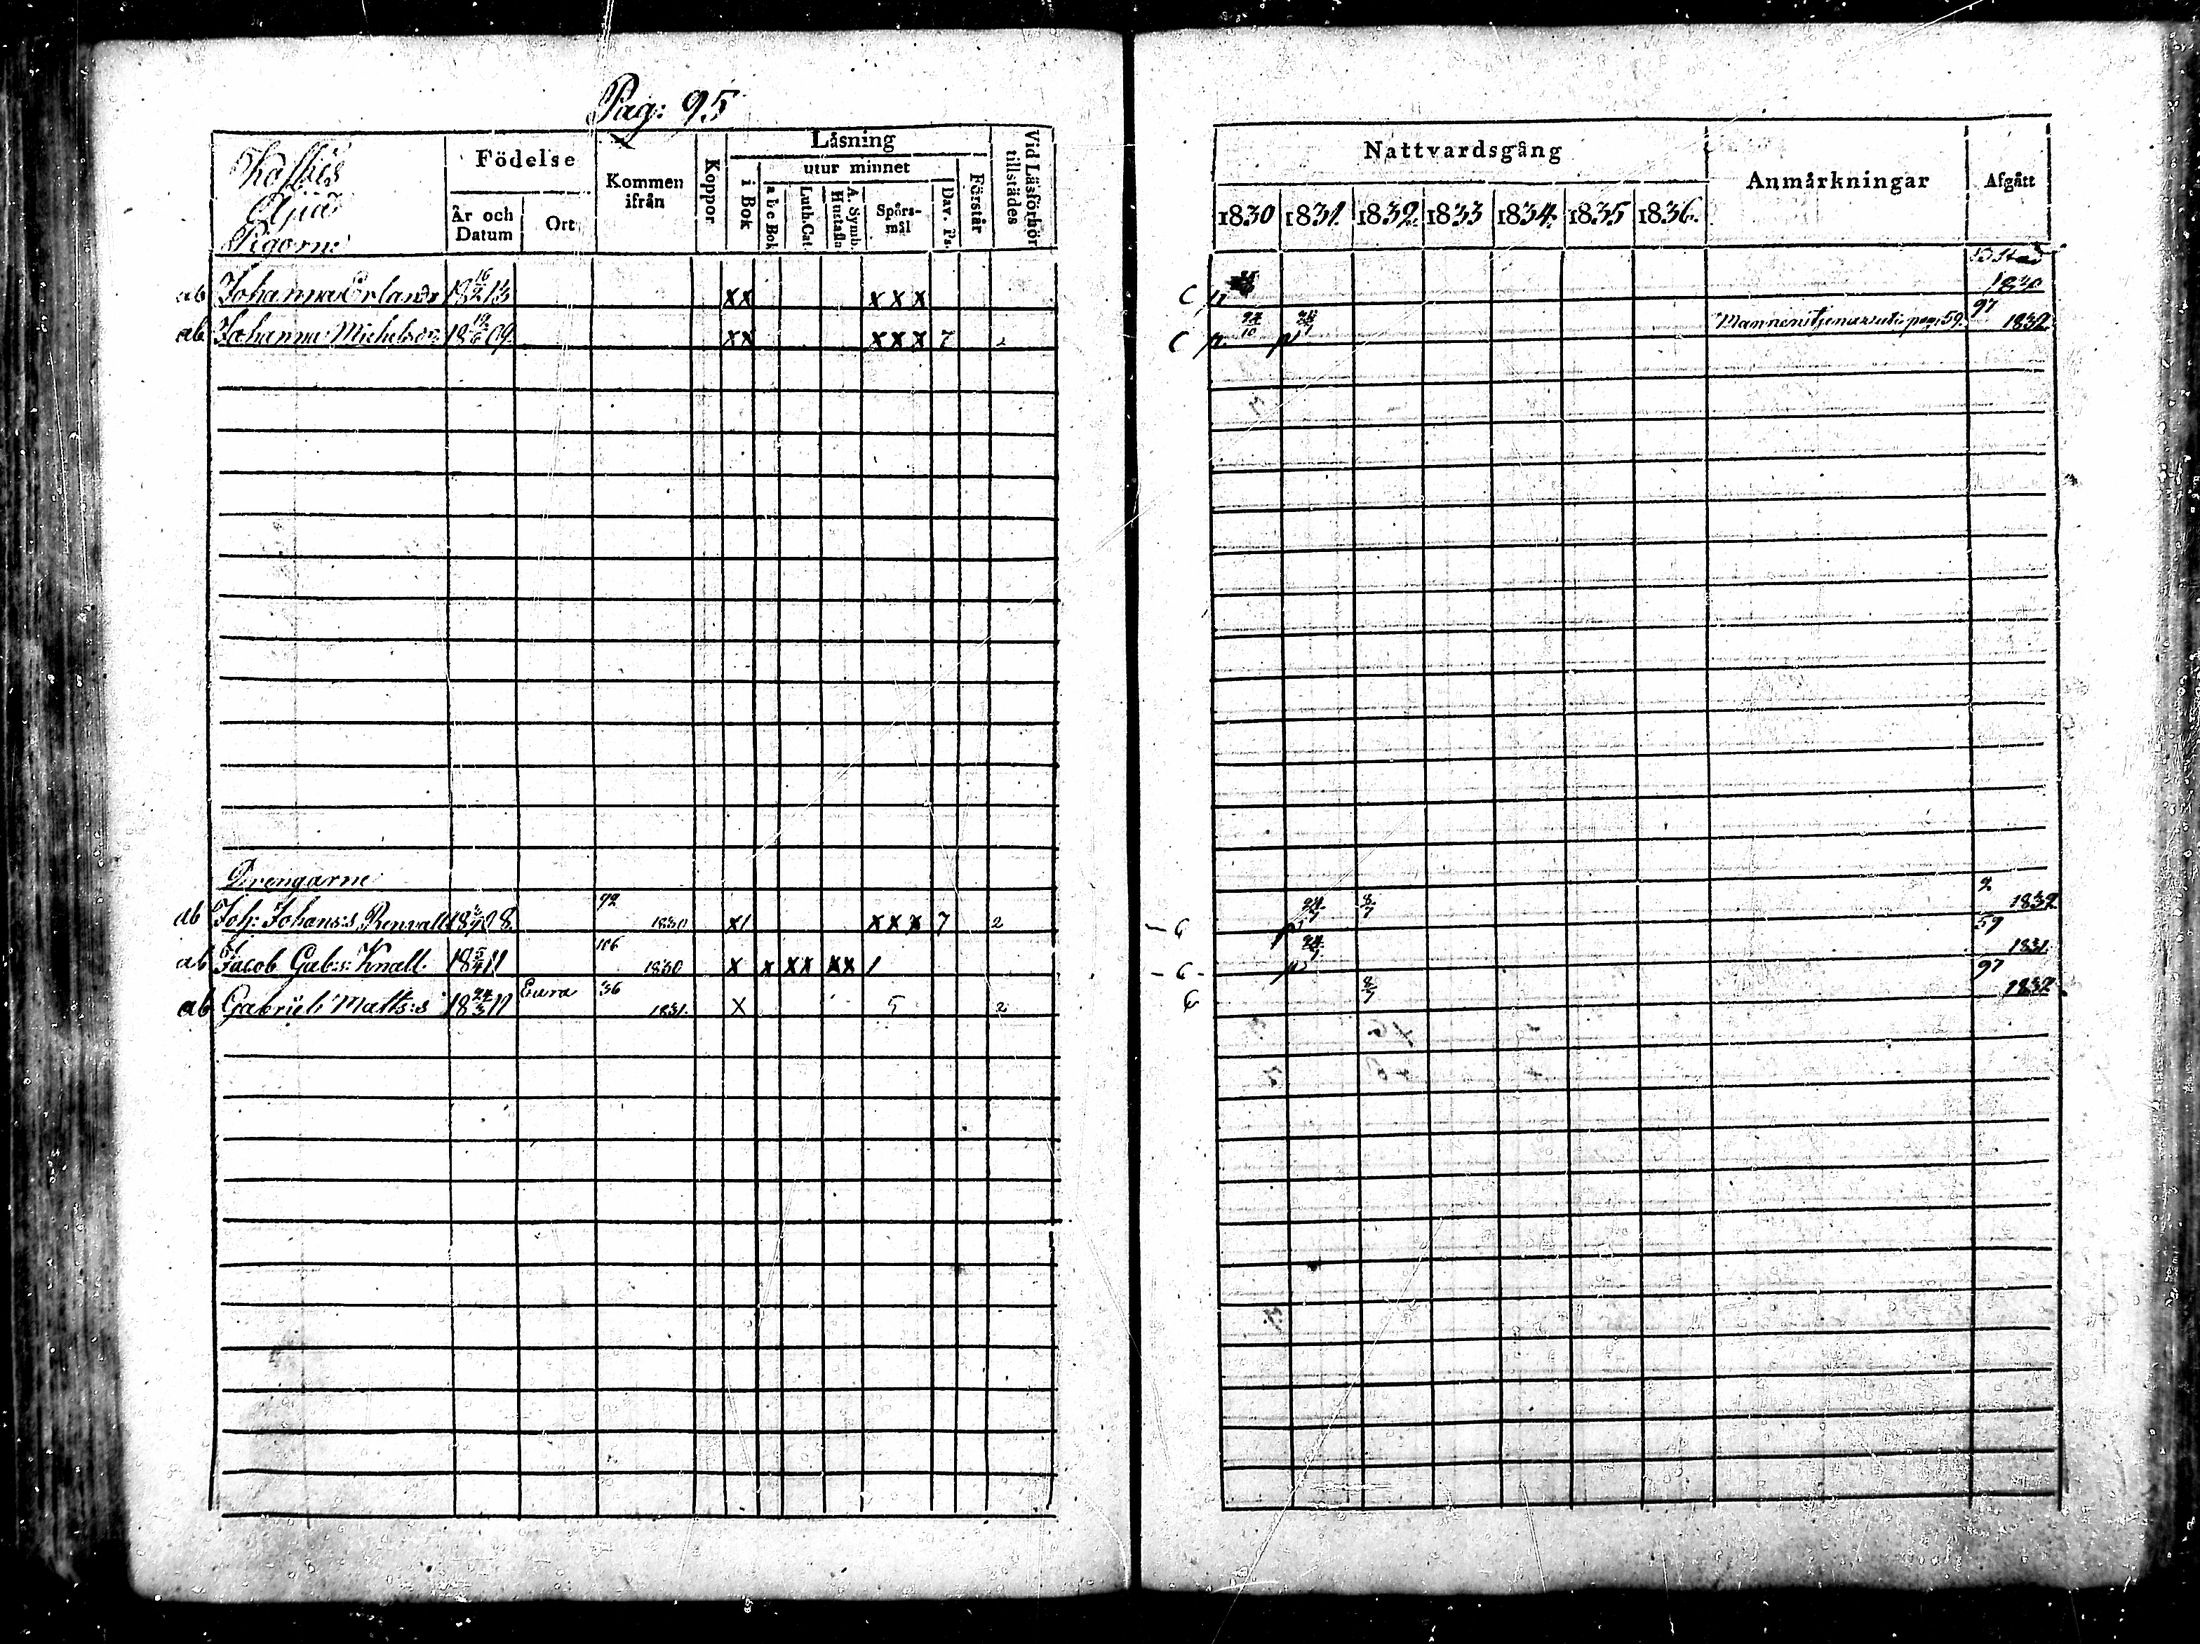 Pag: 95
Pigorne
Födelse
År och Datum
Ort
Kommen ifrån
Koppor
Läsning
i Bok
utur minnet
a b c Bok
Luth. Cat.
A. Symb. Hustafla
Spörs-mål
Dav. Ps.
Förstår
Vid Läsförhör tillstädes
Nattvardsgång
1830 1831 1832 1833 1834 1835 1836
Anmärkningar
Afgått
ab Johanna Erlands 18 13 xx xxx C p 1830
ab Johanna Michels 18 09 xx xxx 7 2 C p 24/10 p pag: 59. 97 1832
Drengarne
ab Joh: Johans:s Renvall 18 08 92 1830 x1 xxx 7 2 p 24/7 8/7 2 1832
ab Jacob Gab:s: Knall 18 11 106 1830 x x xx xx 1 p 24/7 59 1831
ab Gabriel Matts:s 18 24/3 11 Eura 36 1831 x 5 2 8/7 97 1832